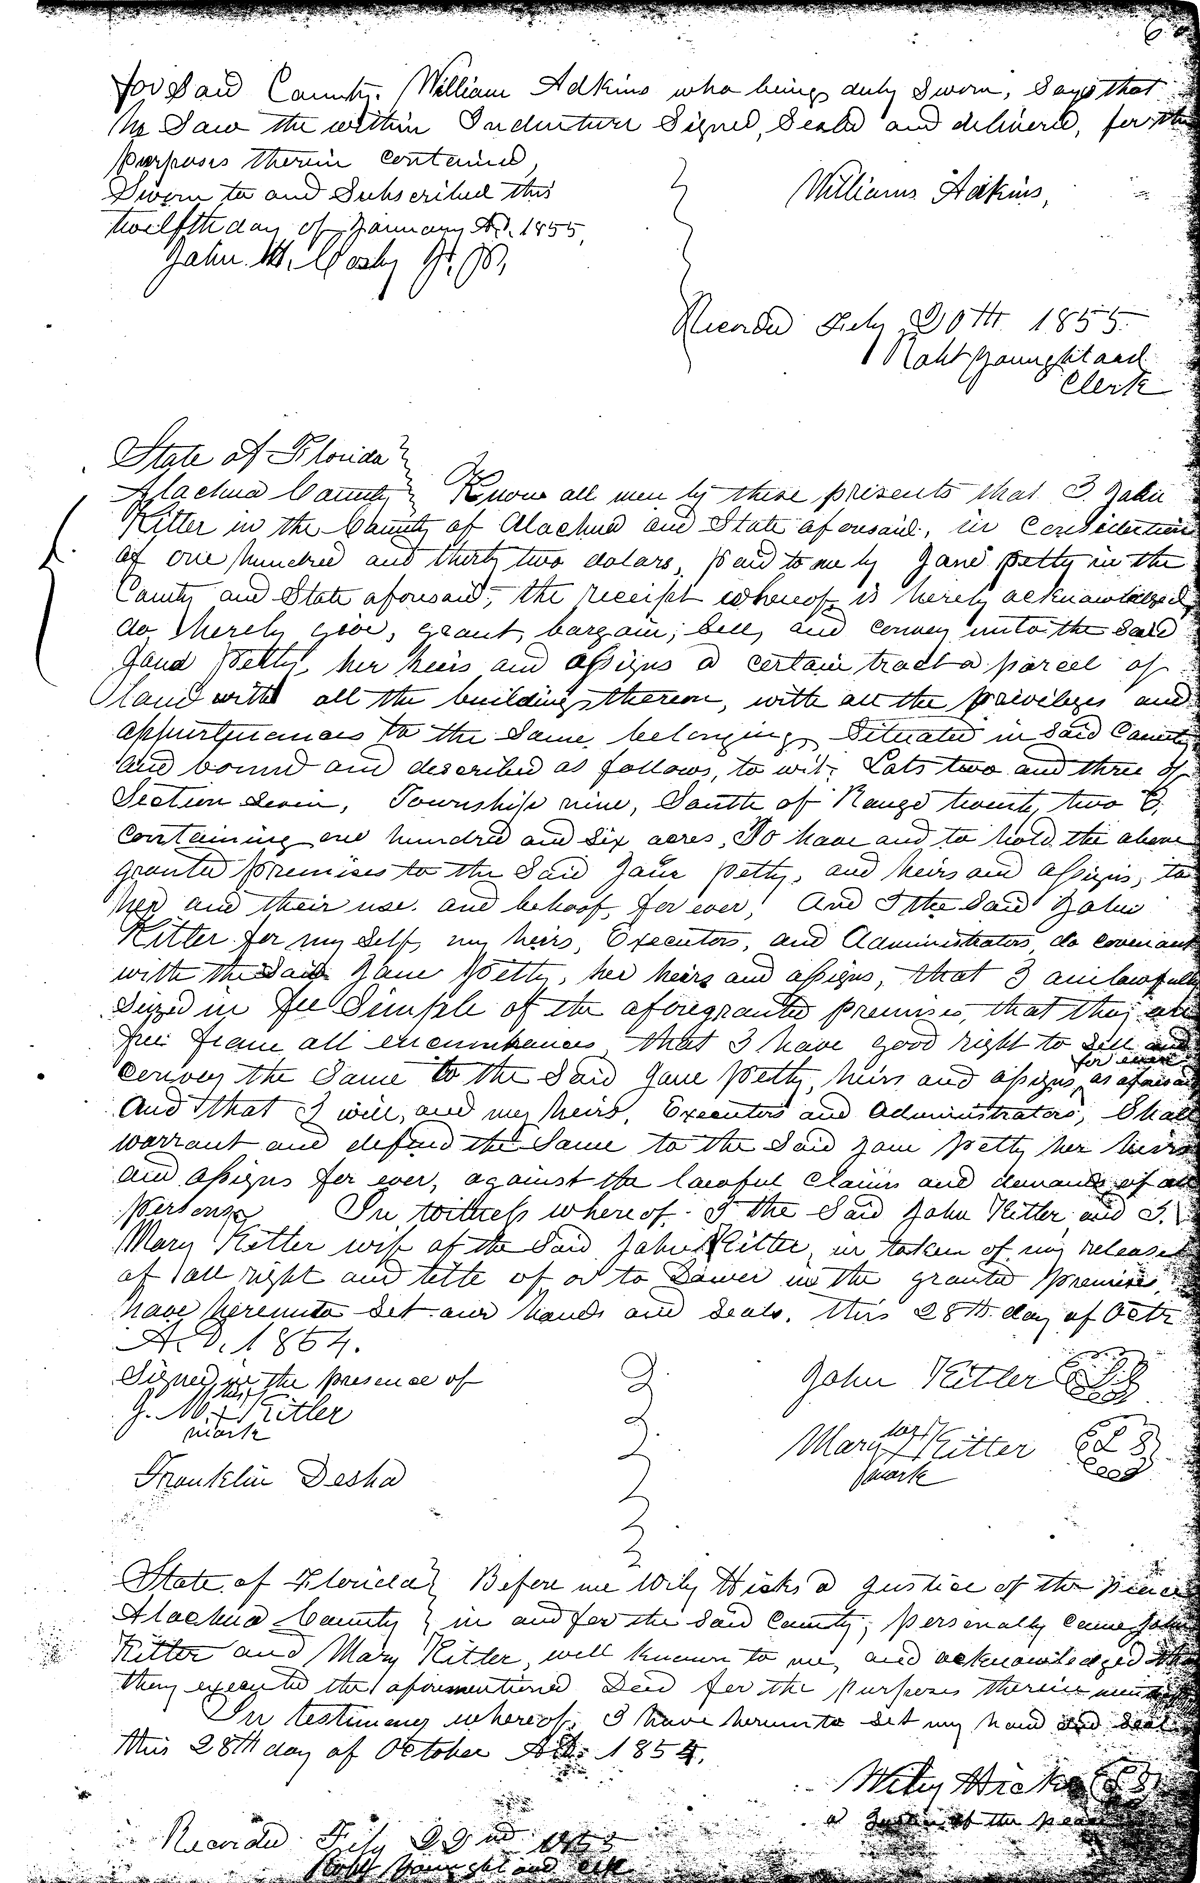 for Said County. William Adkins who being duly Sworn, Says that
he Saw the within Indenture Signed, Seald and delivered, for the
purposes therein contained,
Sworn to and Subscribed this
twelfth day of January AD. 1855,
Williams Adkins,
John M. Cosby J. P.
Recorded Feby 20th 1855.
Robt Younghland
Clerk
State of Florida
Alachua County Know all men by these presents that I John
Kitler in the County of Alachua and State aforesaid, in Consideration
of one hundred and thirty two dolars, paid to me by Jane petty in the
County and State aforesaid, the receipt whereof is hereby acknowledged,
do hereby give, grant, bargain, Sell, and convey unto the Said
Jane petty, her heirs and assigns a certain tract a parcel of
land with all the buildings thereon, with all the privileges and
appurtenances to the Same belonging Situated in Said County
and bound and described as follows, to wit; Lots two and three of
Section Seven, Township nine, South of Range twenty two E,
containing one hundred and Six acres, To have and to hold the above
granted premises to the Said Jane petty, and heirs and assigns, to
her and their use and behoof for ever, And I the Said John
Kitler for my Self, my heirs, Executors, and Administrators, do covenant
with the Said Jane petty, her heirs and assigns, that I am lawfully
Seized in fee Simple of the aforegranted premises, that they are
free frame all encumbrances, that I have good right to Sell and
convey the Same to the Said Jane petty, heirs and assigns for ever as aforesaid
And that I will, and my heirs, Executors and Administrators, Shall
warrant and defend the Same to the Said Jane petty her heirs
and assigns for ever, against the lawful claims and demands of all
persons In witness whereof I the Said John Kitler and I.
Mary Kitler wife of the Said John Kitler, in token of my release
of all right and title of or to Dower in the granted premises,
have hereunto Set our hands and Seals. this 28th day of Octr
A. D. 1854.
Signed in the presence of
John Kitler L S
his
J. M. X Kitler
mark
her
Mary X Kitler L S
mark
Franklin Desha
State of Florida Before me Wily Hicks a Justice of the peace
Alachua County in and for the Said County, personally came John
Kitler and Mary Kitler, well known to me, and acknowledged that
they executed the aforementioned Deed for the purposes therein
In testimony whereof, I have hereunto Set my hand and Seal
this 28th day of October AD. 1854.
Wiley Hicks L S
a Justice of the peace
Recorded Feby 22nd 1855
Robt Younghland Clk